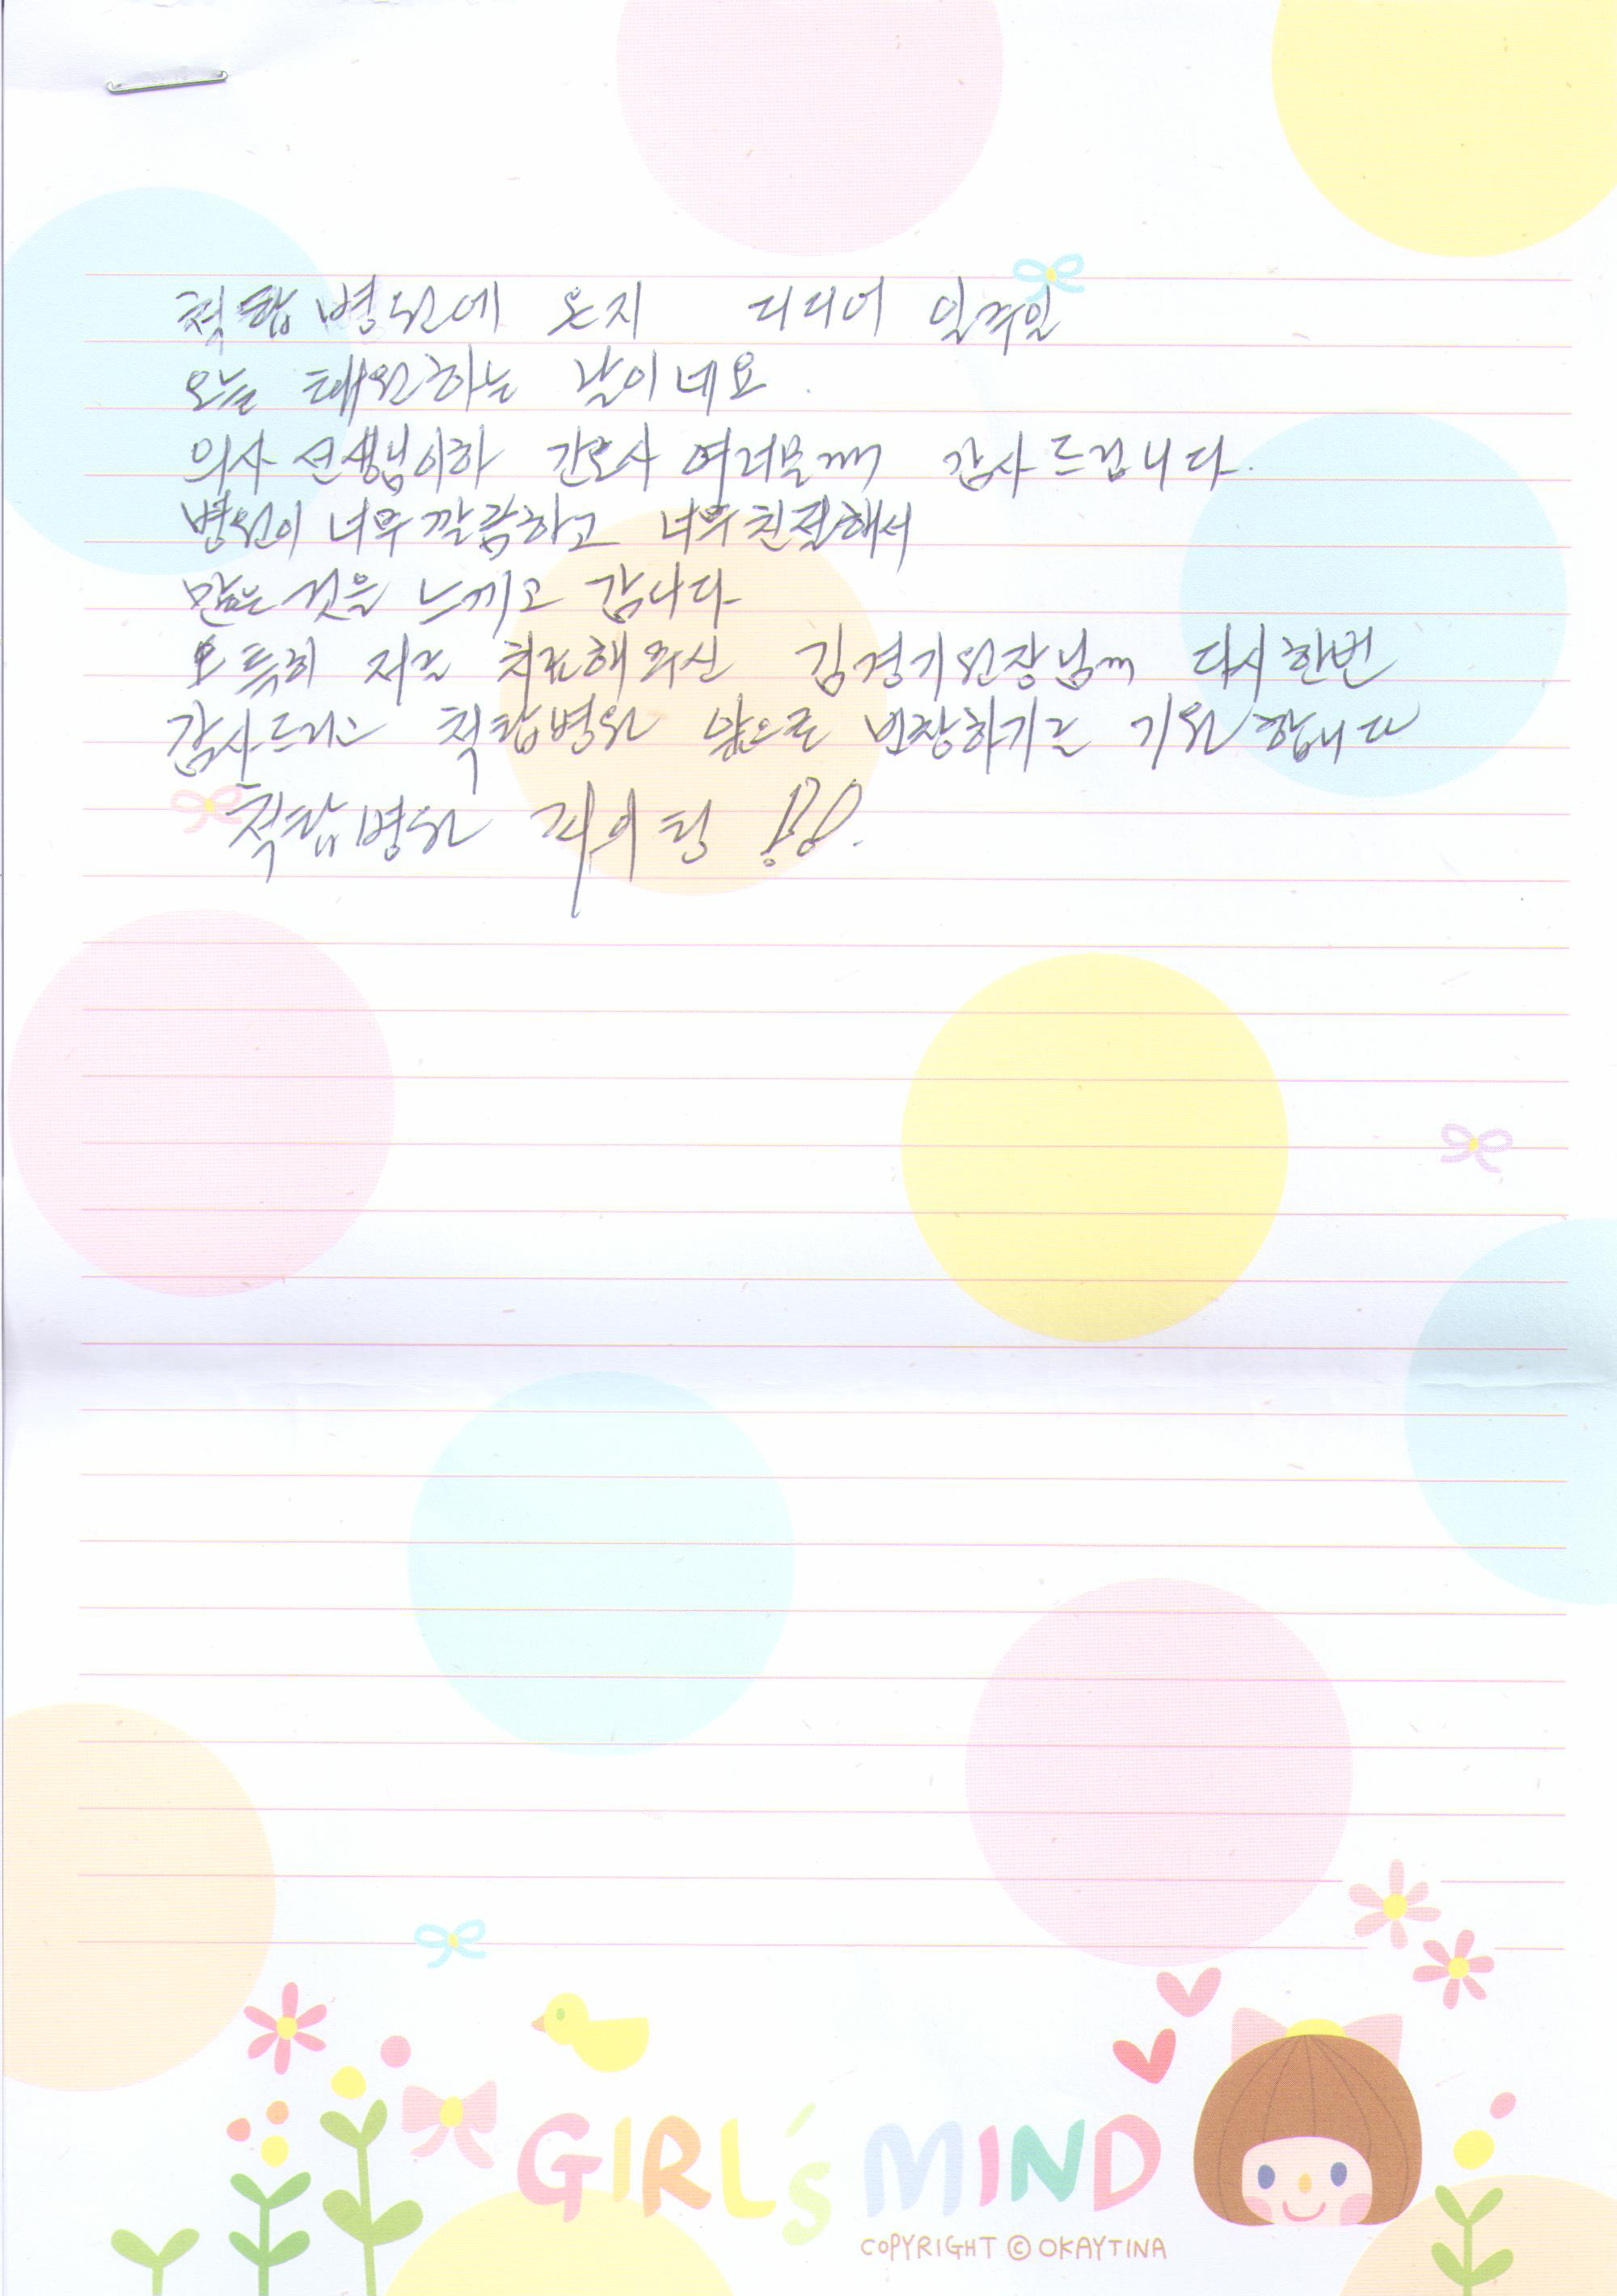 척탑병원에 온지 디디어 일주일
오늘 퇴원하는 날이네요.
의사 선생님이하 간호사 여러분께 감사드립니다.
병원이 너무 깔끔하고 너무 친절해서
많은 것을 느끼고 갑니다
특히 저를 치료해주신 김경기원장님께 다시한번
감사드리고 척탑병원 앞으로 번창하기를 기원합니다
척탑병원 화이팅 !!!.
GIRL's MIND
COPYRIGHT © OKAYTINA